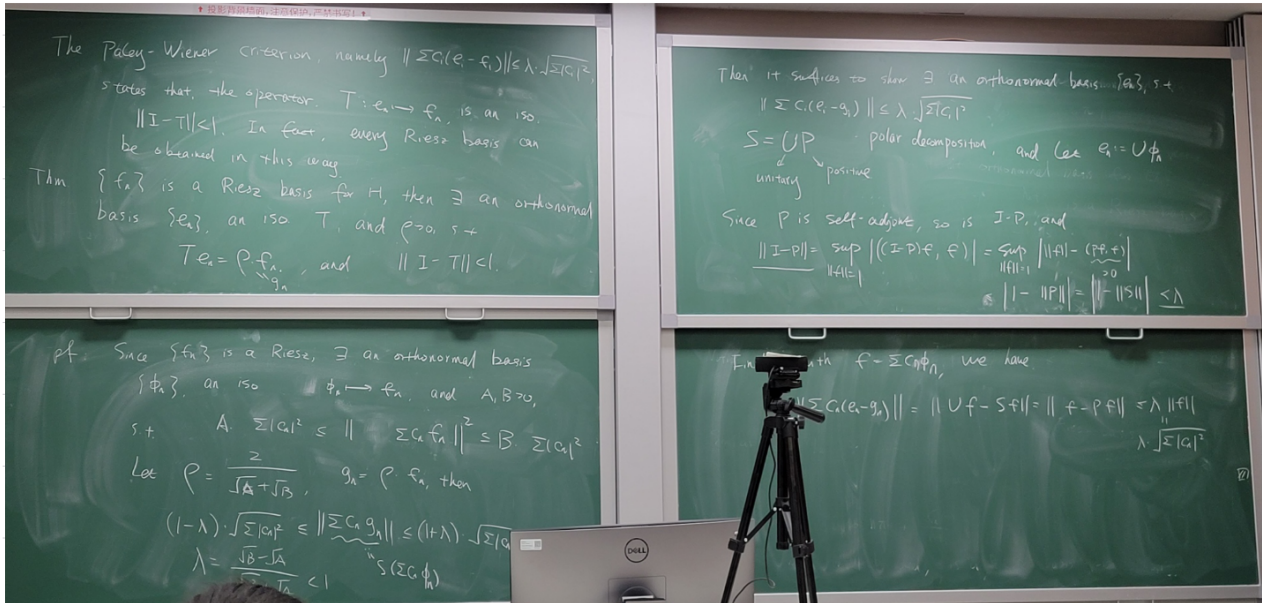 ↑ 投影背景墙面,注意保护,严禁书写! ↑
The Paley-Wiener criterion, namely ‖ΣCᵢ(eᵢ-fᵢ)‖ ≤ λ·√Σ|Cᵢ|²,
states that, the operator T: eₙ ⟼ fₙ is an iso.
‖I-T‖<1. In fact, every Riesz basis can
be obtained in this way.
Thm {fₙ} is a Riesz basis for H, then ∃ an orthonormal
basis {eₙ}, an iso T, and ρ>0, s.t.
Teₙ = ρ·fₙ, and ‖I-T‖<1.
gₙ
pf. Since {fₙ} is a Riesz, ∃ an orthonormal basis
{ϕₙ}, an iso ϕₙ ⟼ fₙ, and A,B>0,
s.t. A·Σ|Cₙ|² ≤ ‖ΣCₙfₙ‖² ≤ B·Σ|Cₙ|²
Let ρ = 2/(√A+√B), gₙ = ρ·fₙ, then
(1-λ)·√Σ|Cₙ|² ≤ ‖ΣCₙgₙ‖ ≤ (1+λ)·√Σ|Cₙ
λ = √B-√A / √A <1 S(ΣCₙϕₙ)
Then it suffices to show ∃ an orthonormal basis {eₙ}, s.t.
‖ΣCᵢ(eᵢ-gᵢ)‖ ≤ λ·√Σ|Cᵢ|²
S = UP polar decomposition, and let eₙ := Uϕₙ
unitary positive
Since P is self-adjoint, so is I-P, and
‖I-P‖ = sup ‖f‖=1 |((I-P)f, f)| = sup ‖f‖=1 |‖f‖-(Pf,f)|
>0
|1-‖P‖| = |1-‖S‖| ≤λ
f = ΣCₙϕₙ, we have
‖ΣCₙ(eₙ-gₙ)‖ = ‖Uf-Sf‖ = ‖f-Pf‖ ≤ λ‖f‖
λ·√Σ|Cₙ|²
DELL